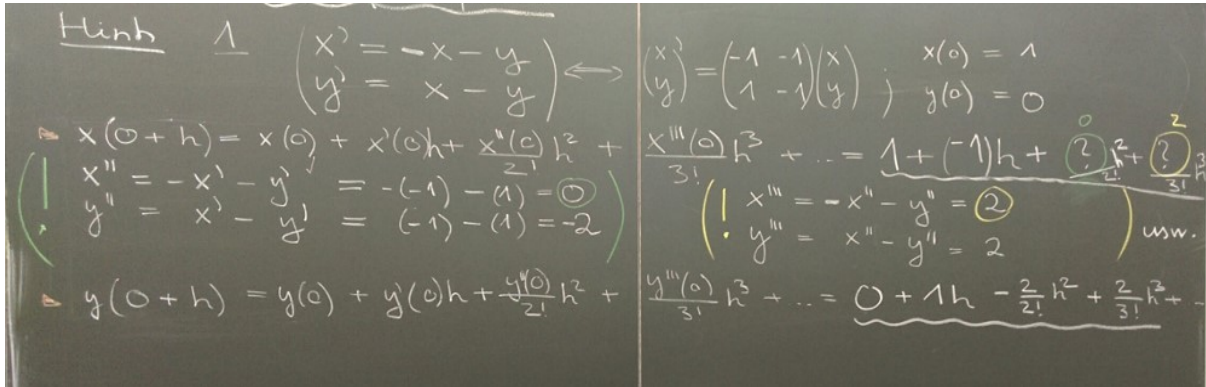 Hinh 1 (x' = -x - y ⟷ (x' = (-1 -1)(x) ; x(0) = 1
y' = x - y) y') (1 -1)(y) y(0) = 0
▸ x(0+h) = x(0) + x'(0)h + x''(0)/2! h² + x'''(0)/3! h³ + .. = 1 + (-1)h + ?/2! h² + ?/3! h³
0 2
(! x'' = -x' - y' = -(-1) - (1) = 0 (! x''' = -x'' - y'' = 2
y'' = x' - y' = (-1) - (1) = -2) y''' = x'' - y'' = 2) usw.
▸ y(0+h) = y(0) + y'(0)h + y''(0)/2! h² + y'''(0)/3! h³ + .. = 0 + 1h - 2/2! h² + 2/3! h³ + ..